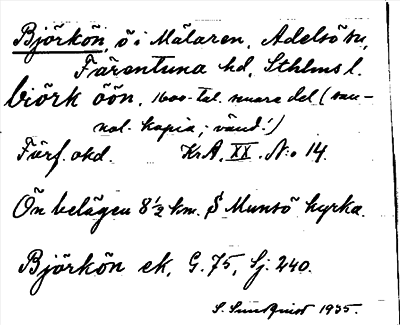 Björkön, ö i Mälaren, Adelsö sn,
Färentuna hd, Sthlms l.
biörk öön, 1600-tal. senare del (san-
nol. kopia; vänd!)
Förf. okd. KrA, XX. N:o 14.
Ön belägen 8 1/2 km. S Munsö kyrka.
Björkön ek, G. 75, Sj. 240.
S. Sundquist 1935.